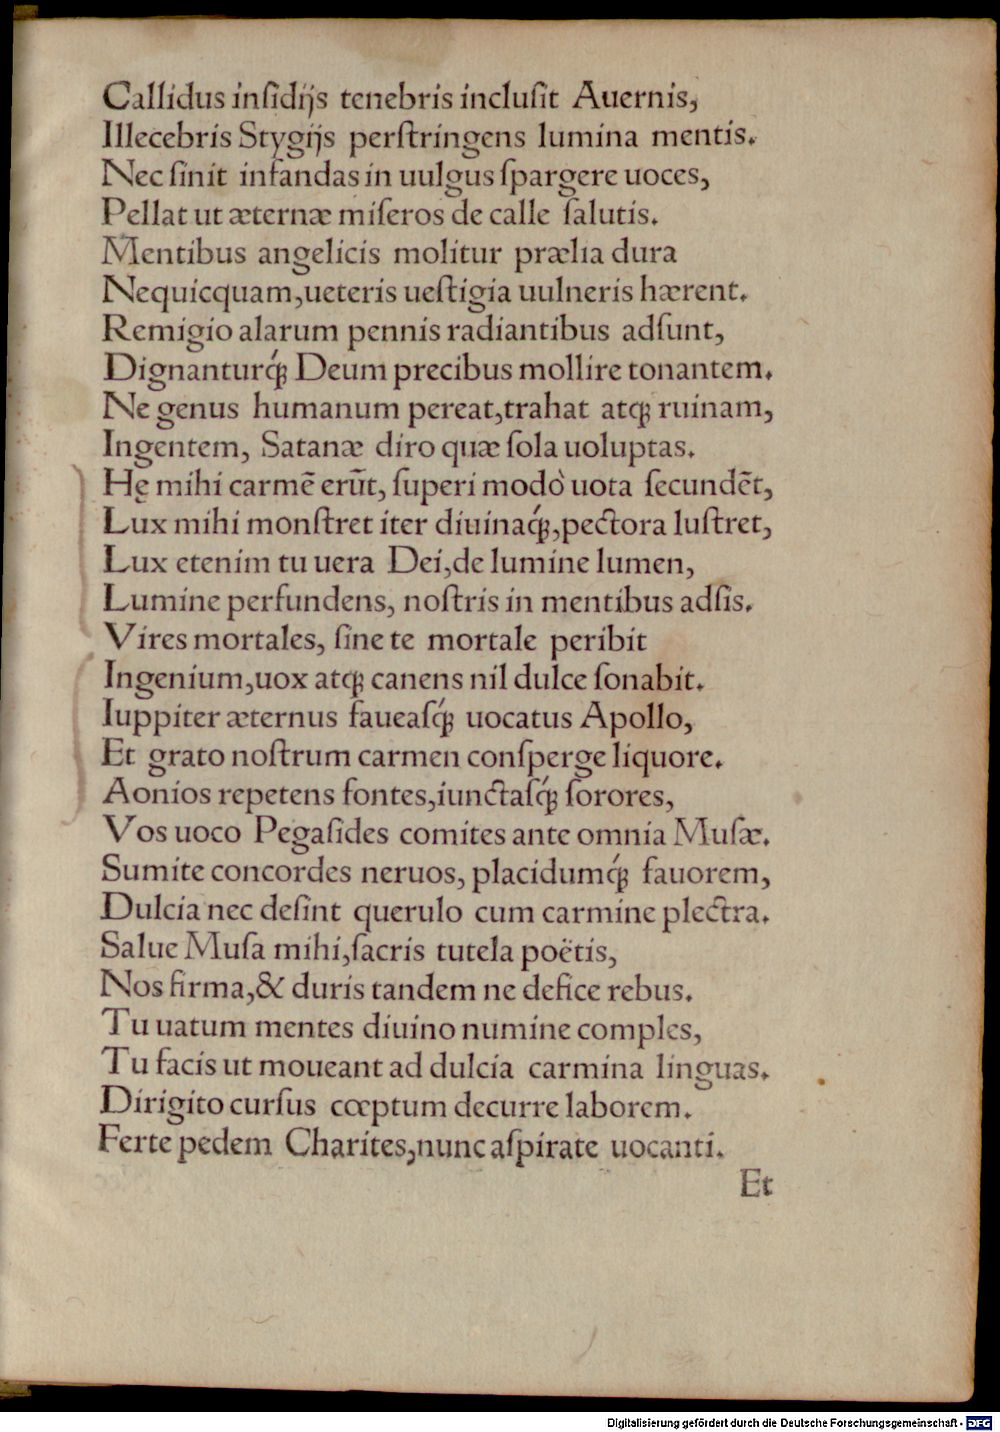 Callidus inſidijs tenebris incluſit Auernis,
Illecebris Stygijs perſtringens lumina mentis.
Nec ſinit infandas in uulgus ſpargere uoces,
Pellat ut æternæ miſeros de calle ſalutis.
Mentibus angelicis molitur prælia dura
Nequicquam,ueteris ueſtigia uulneris hærent.
Remigio alarum pennis radiantibus adſunt,
Dignanturq́ꝫ Deum precibus mollire tonantem.
Ne genus humanum pereat,trahat atqꝫ ruinam,
Ingentem, Satanæ diro quæ ſola uoluptas.
Hę mihi carmē erūt, ſuperi modò uota ſecundēt,
Lux mihi monſtret iter diuinaq́ꝫ,pectora luſtret,
Lux etenim tu uera Dei,de lumine lumen,
Lumine perfundens, noſtris in mentibus adſis.
Vires mortales, ſine te mortale peribit
Ingenium,uox atqꝫ canens nil dulce ſonabit.
Iuppiter æternus faueaſq́ꝫ uocatus Apollo,
Et grato noſtrum carmen conſperge liquore.
Aonios repetens fontes,iunctaſq́ꝫ ſorores,
Vos uoco Pegaſides comites ante omnia Muſæ.
Sumite concordes neruos, placidumq́ꝫ fauorem,
Dulcia nec deſint querulo cum carmine plectra.
Salue Muſa mihi,ſacris tutela poëtis,
Nos firma,& duris tandem ne defice rebus.
Tu uatum mentes diuino numine comples,
Tu facis ut moueant ad dulcia carmina linguas.
Dirigito curſus cœptum decurre laborem.
Ferte pedem Charites,nunc aſpirate uocanti.
Et
Digitalisierung gefördert durch die Deutsche Forschungsgemeinschaft - DFG